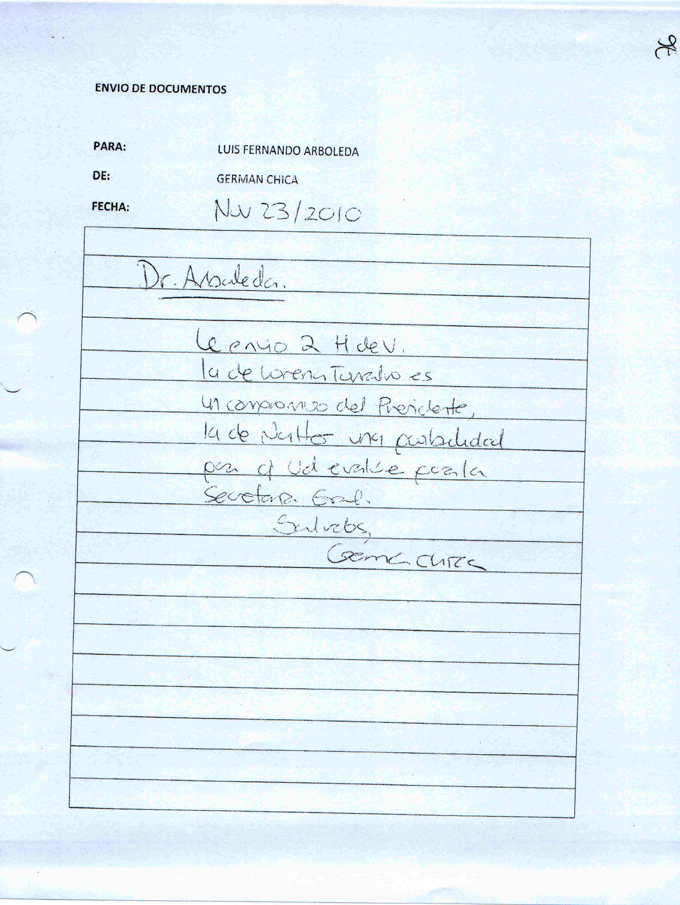 ENVIO DE DOCUMENTOS
PARA: LUIS FERNANDO ARBOLEDA
DE: GERMAN CHICA
FECHA: Nov 23/2010
Dr. Arboleda.
Le envio 2 H de V.
la de Lorena es
un compromiso del Presidente,
la de una posibilidad
para q Ud evalúe para la
Secretaria Gral.
Saludos,
German Chica